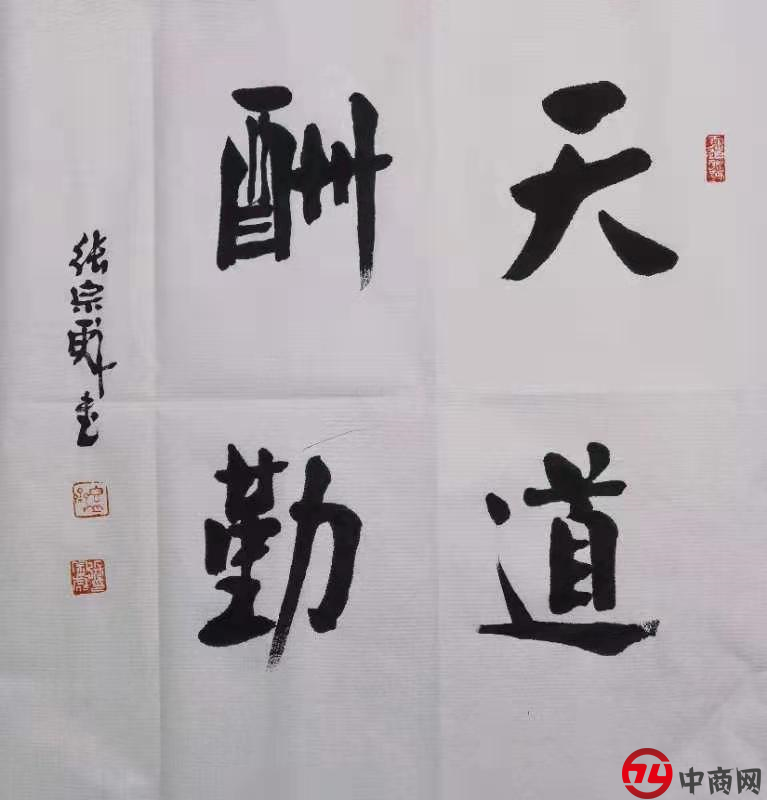 天道
酬勤
张宗辉书
中商网